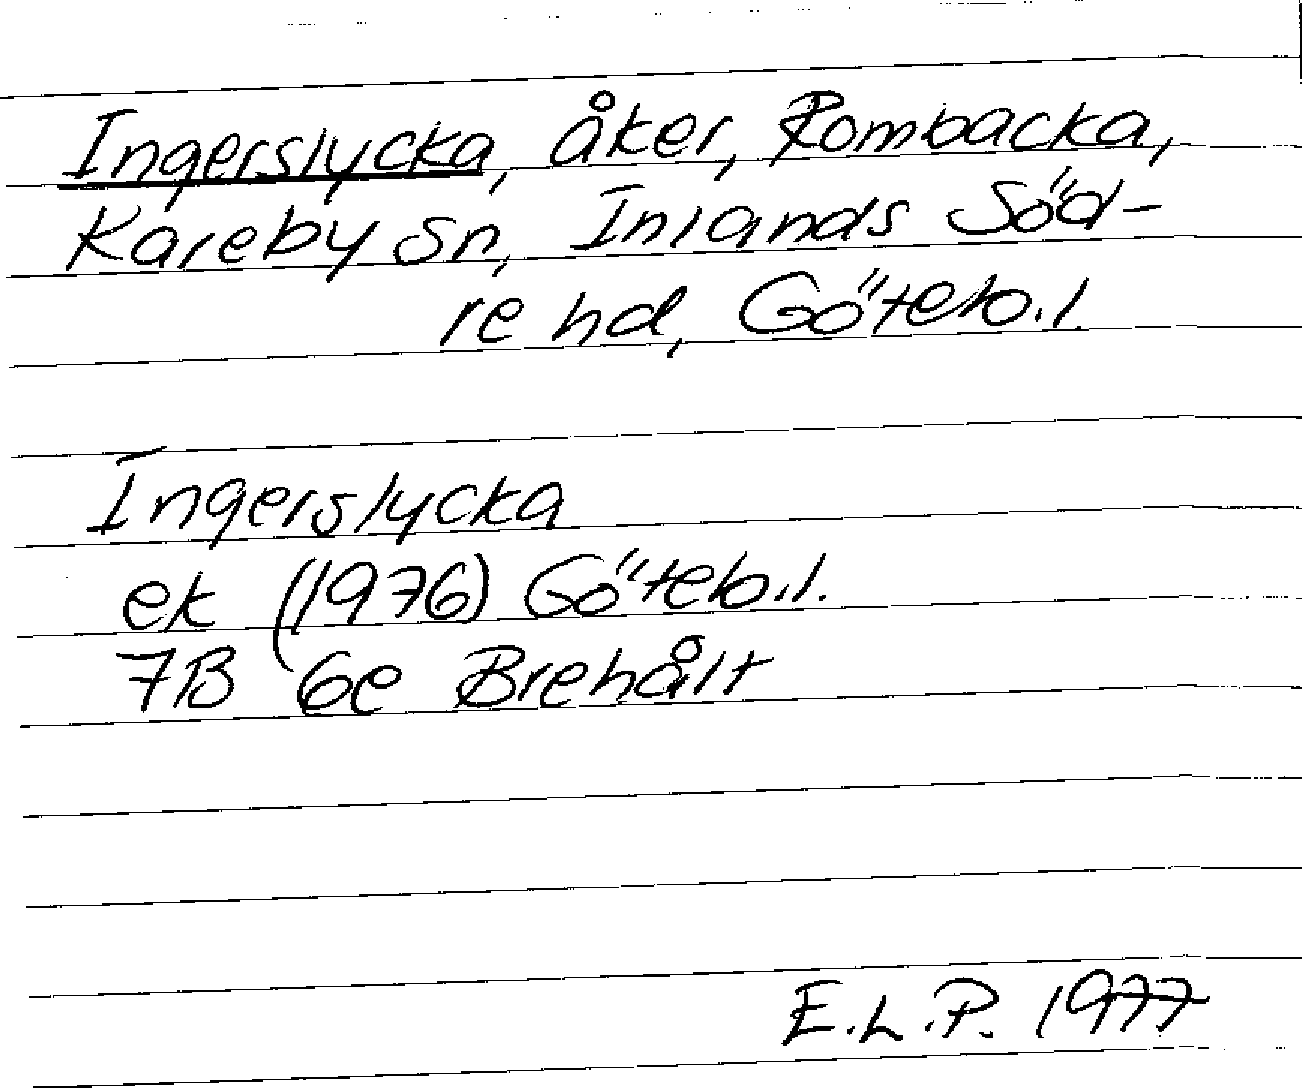 Ingerslycka, åker, Rombacka,
Kareby sn, Inlands Söd-
re hd, Göteb.l.
Ingerslycka
ek (1976) Göteb.l.
7B 6e Brehålt
E.L.P. 1977